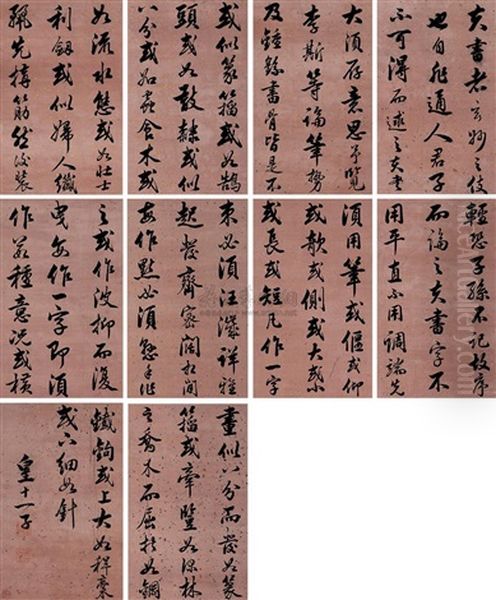 夫書者玄妙之伎
也自非通人君子
不可得而述之夫書
大須存意思予覽
李斯等論筆勢
及鍾繇書骨皆是不
輕恐子孫不記故序
而論之夫書字不
用平直不用調端先
須用筆或偃或仰
或欹或側或大或小
或長或短凡作一字
或似篆籀或如鵠
頭或如散隸或似
八分或如蟲食木或
如流水態或如壯士
利劔或似婦人纖
麗先構筋然後裝
束必須汪瀁詳雅
起發齊密闊相間
每作點必須懸手作
之或作波抑而復
曳每作一字即須
作數種意況或橫
畫似八分而發如篆
籀或牽豎如深林
之喬木而屈折如鋼
鐵鉤或上大如稈稾
或下細如針
皇十一子